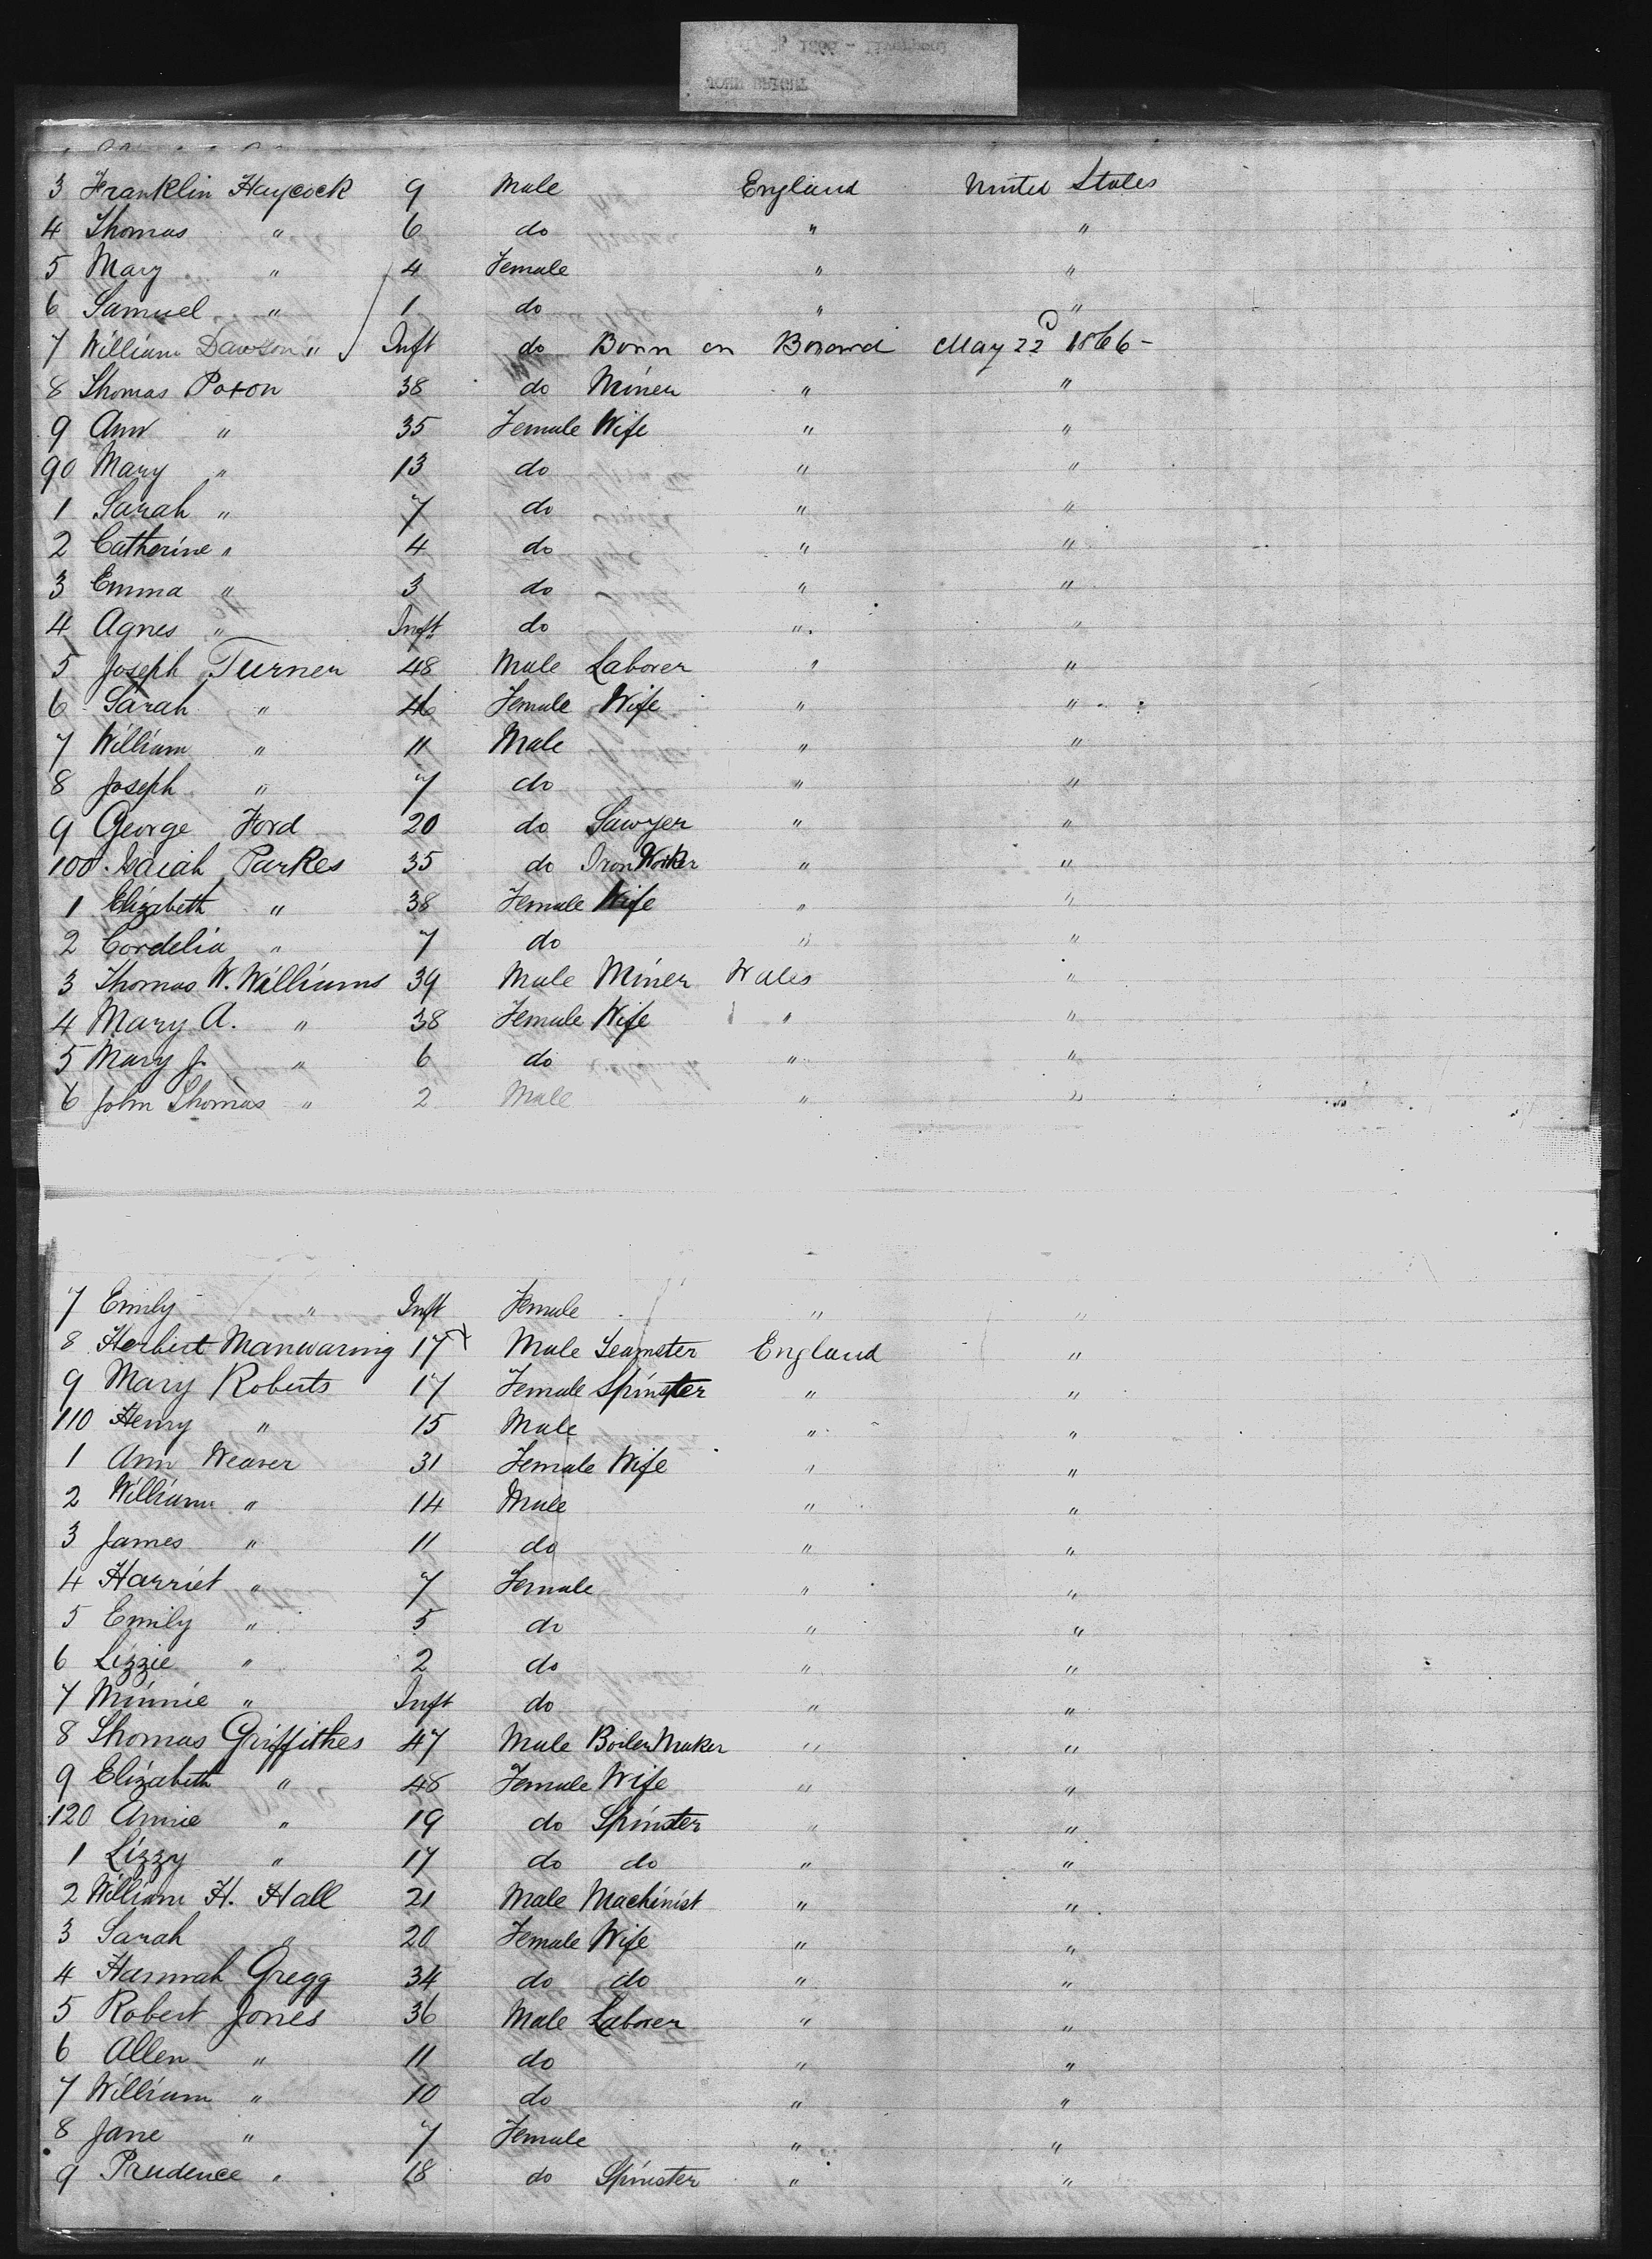 3 Franklin Haycock 9 Male England United States
4 Thomas " 6 do " "
5 Mary " 4 Female " "
6 Samuel " 1 do " "
7 William Dawson " Inft do Born on Board May 22d 1866 -
8 Thomas Poxon 38 do Miner " "
9 Ann " 35 Female Wife " "
90 Mary " 13 do " "
1 Sarah " 7 do " "
2 Catherine " 4 do " "
3 Emma " 3 do " "
4 Agnes " Inft do " "
5 Joseph Turner 48 Male Laborer " "
6 Sarah " 46 Female Wife " "
7 William " 11 Male " "
8 Joseph " 7 do " "
9 George Ford 20 do Sawyer " "
100 Isaiah Parkes 35 do Iron Worker " "
1 Elizabeth " 38 Female Wife " "
2 Cordelia " 7 do " "
3 Thomas W. Williams 39 Male Miner Wales "
4 Mary A. " 38 Female Wife " "
5 Mary J. " 6 do " "
6 John Thomas " 2 Male " "
7 Emily " Inft Female " "
8 Herbert Manwaring 17 Male Teamster England "
9 Mary Roberts 17 Female Spinster " "
110 Henry " 15 Male " "
1 Ann Weaver 31 Female Wife " "
2 William " 14 Male " "
3 James " 11 do " "
4 Harriet " 7 Female " "
5 Emily " 5 do " "
6 Lizzie " 2 do " "
7 Minnie " Inft do " "
8 Thomas Griffithes 47 Male Boiler Maker " "
9 Elizabeth " 48 Female Wife " "
120 Annie " 19 do Spinster " "
1 Lizzy " 17 do do " "
2 William H. Hall 21 Male Machinist " "
3 Sarah " 20 Female Wife " "
4 Hannah Gregg 34 do do " "
5 Robert Jones 36 Male Laborer " "
6 Allen " 11 do " "
7 William " 10 do " "
8 Jane " 7 Female " "
9 Prudence " 18 do Spinster " "